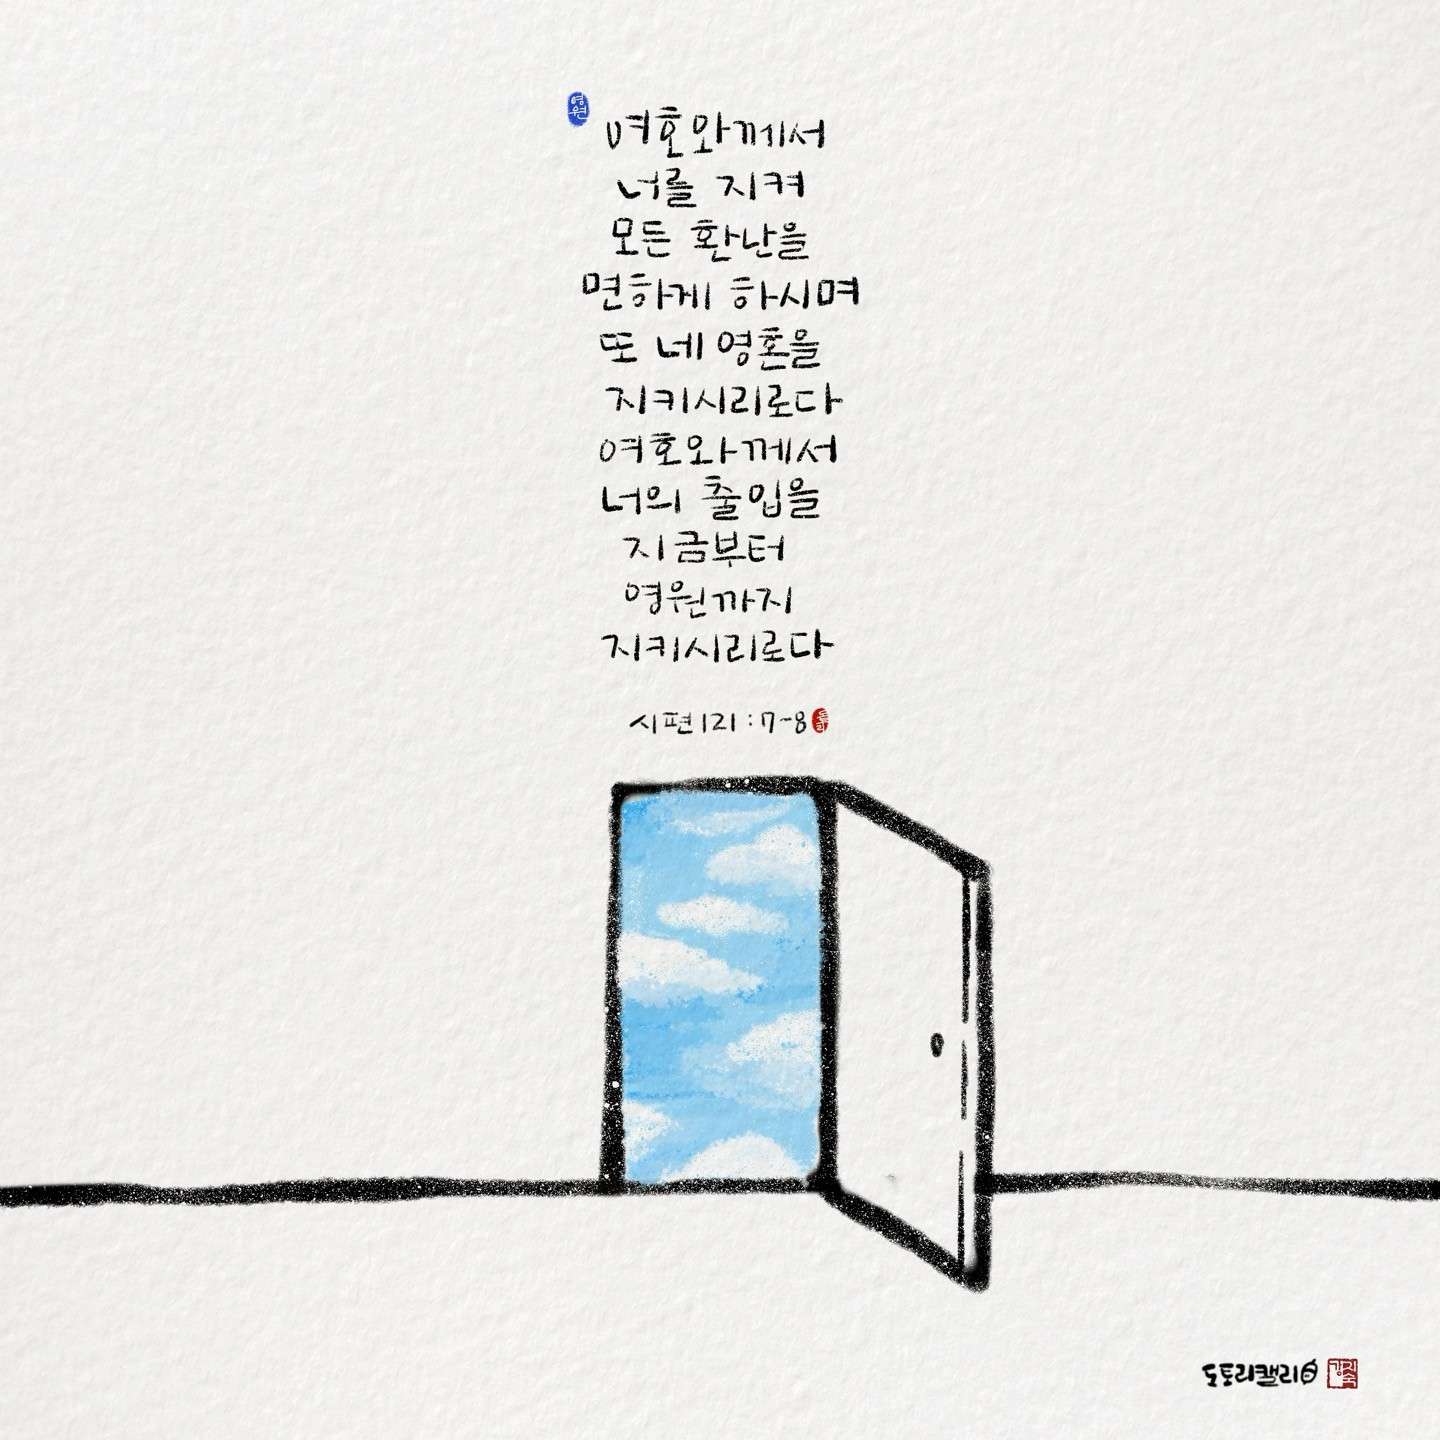 영원
여호와께서
너를 지켜
모든 환난을
면하게 하시며
또 네 영혼을
지키시리로다
여호와께서
너의 출입을
지금부터
영원까지
지키시리로다
시편 121:7-8
도토리캘리